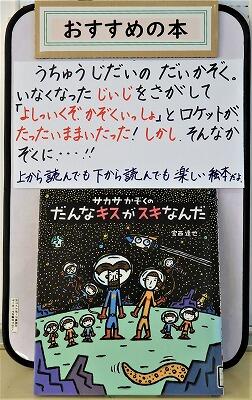 おすすめの本
うちゅうじだいの だいかぞく。
いなくなった じいじをさがして
「よしいくぞ かぞくいっしょ」とロケットが、
たったいままいたった! しかし、そんなか
ぞくに・・・!!
上から読んでも下から読んでも 楽しい絵本だよ。
サカサかぞくの
だんなキスがスキなんだ
宮西達也